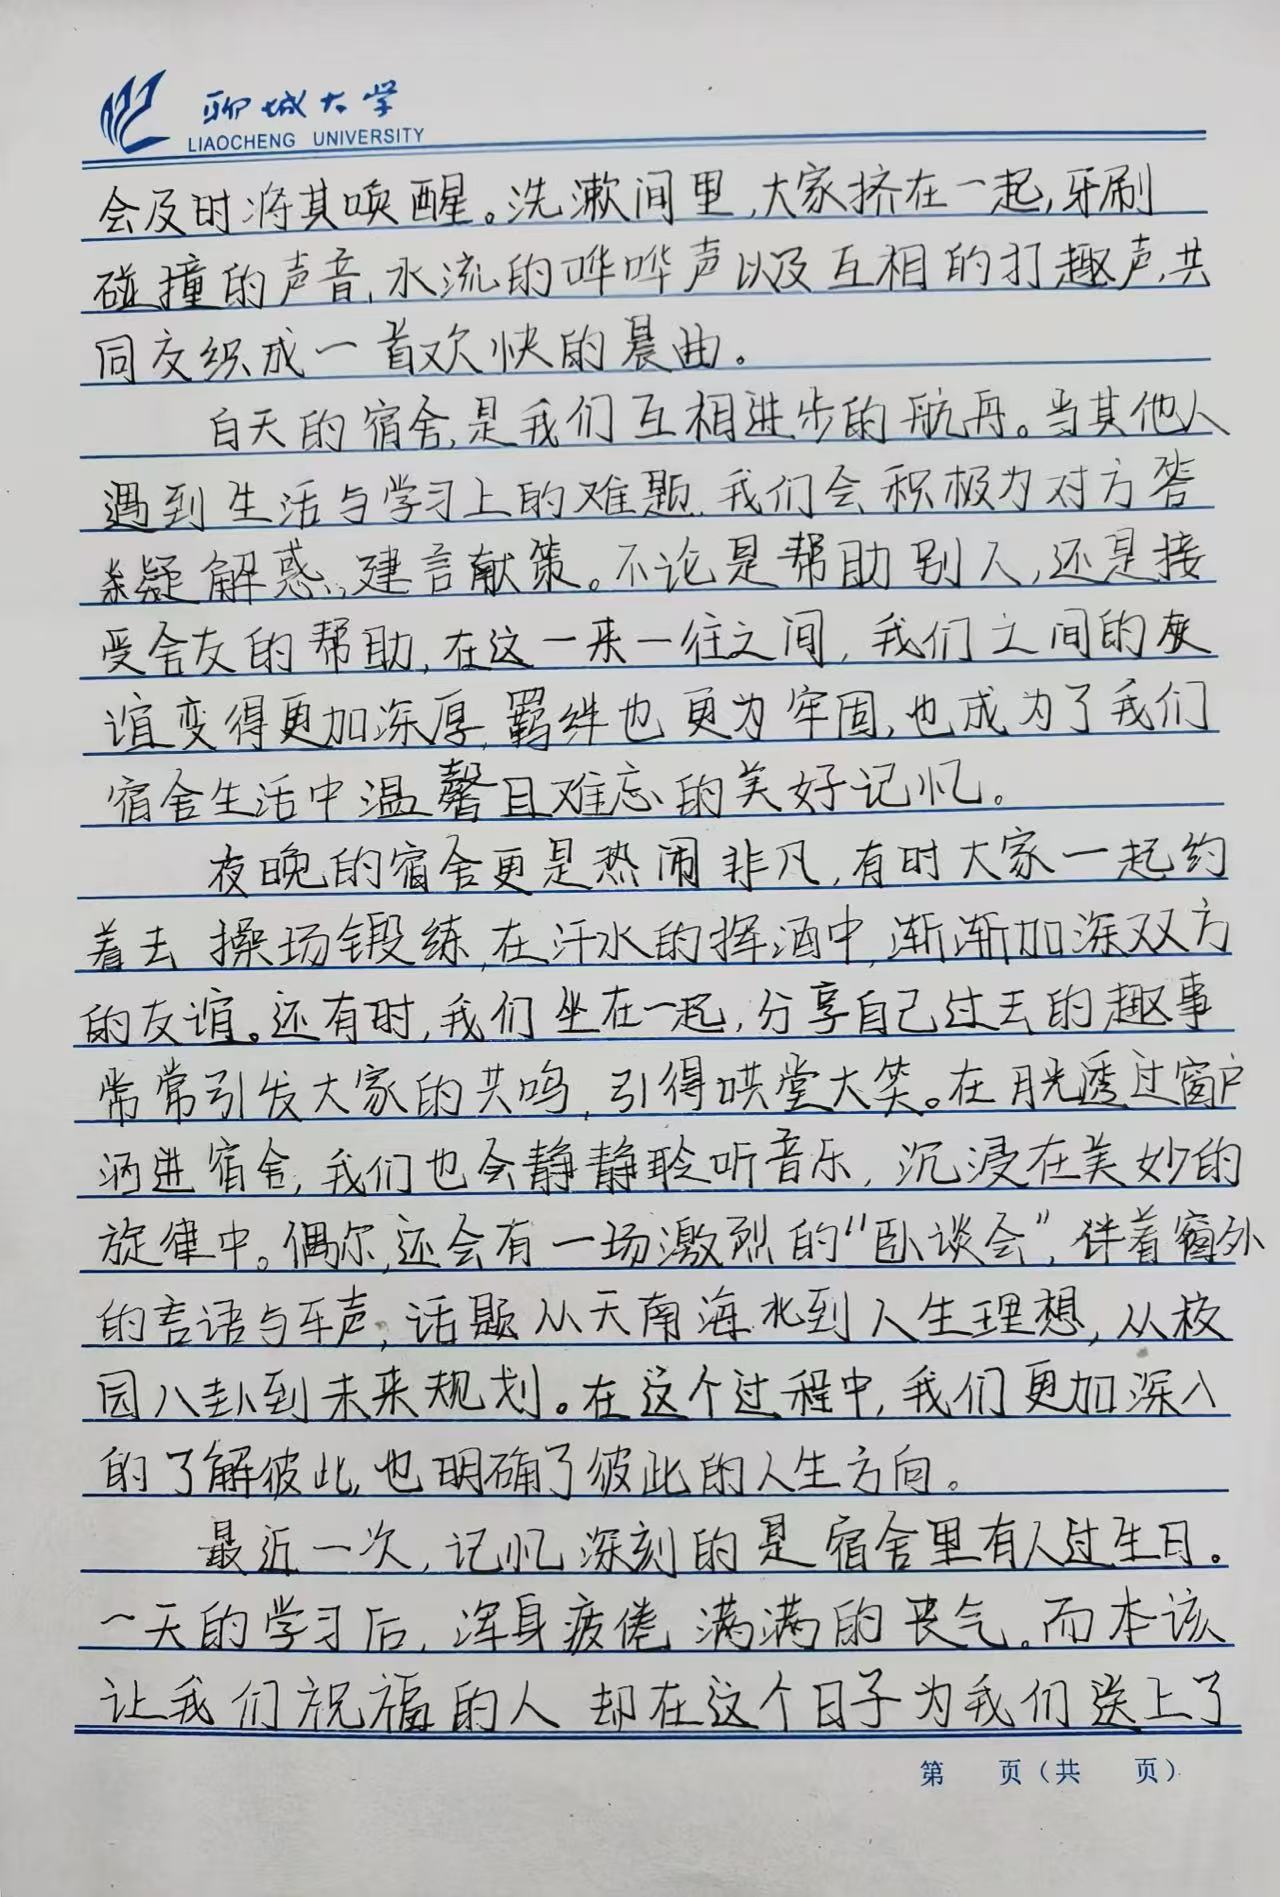 聊城大学
LIAOCHENG UNIVERSITY
会及时将其唤醒。洗漱间里,大家挤在一起,牙刷
碰撞的声音,水流的哗哗声以及互相的打趣声,共
同交织成一首欢快的晨曲。
白天的宿舍,是我们互相进步的航舟。当其他人
遇到生活与学习上的难题,我们会积极为对方答
疑解惑,建言献策。不论是帮助别人,还是接
受舍友的帮助,在这一来一往之间,我们之间的友
谊变得更加深厚,羁绊也更为牢固,也成为了我们
宿舍生活中温馨且难忘的美好记忆。
夜晚的宿舍更是热闹非凡,有时大家一起约
着去操场锻练,在汗水的挥洒中,渐渐加深双方
的友谊。还有时,我们坐在一起,分享自己过去的趣事
常常引发大家的共鸣,引得哄堂大笑。在月光透过窗户
洒进宿舍,我们也会静静聆听音乐,沉浸在美妙的
旋律中。偶尔,还会有一场激烈的“卧谈会”,伴着窗外
的言语与车声,话题从天南海北到人生理想,从校
园八卦到未来规划。在这个过程中,我们更加深入
的了解彼此,也明确了彼此的人生方向。
最近一次,记忆深刻的是宿舍里有人过生日。
一天的学习后,浑身疲倦,满满的丧气。而本该
让我们祝福的人却在这个日子为我们送上了
第 页(共 页)